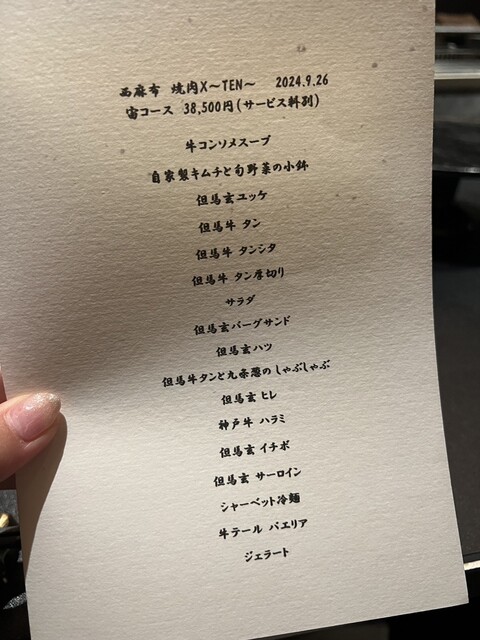 西麻布 焼肉X〜TEN〜 2024.9.26
宙コース 38,500円(サービス料別)
牛コンソメスープ
自家製キムチと旬野菜の小鉢
但馬玄ユッケ
但馬牛 タン
但馬牛 タンシタ
但馬牛 タン厚切り
サラダ
但馬玄バーグサンド
但馬玄ハツ
但馬牛タンと九条葱のしゃぶしゃぶ
但馬玄 ヒレ
神戸牛 ハラミ
但馬玄 イチボ
但馬玄 サーロイン
シャーベット冷麺
牛テール パエリア
ジェラート